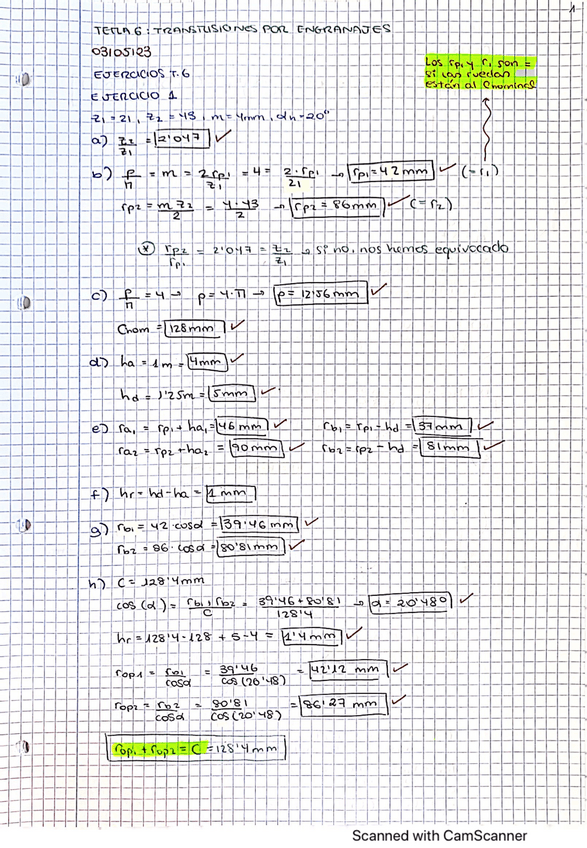 1
TEMA 6: TRANSMISIONES POR ENGRANAJES
03105123
Los rp1 y r1 son =
si las ruedas
están al Cnominal
EJERCICIOS T.6
EJERCICIO 1
z1 = 21, z2 = 43, m = 4mm, αn = 20°
a) z2/z1 = 2'047 ✓
b) p/π = m = 2rp1/z1 = 4 = 2·rp1/21 → rp1 = 42 mm ✓ (= r1)
rp2 = m z2/2 = 4·43/2 → rp2 = 86mm ✓ (= r2)
(*) rp2/rp1 = 2'047 = z2/z1 → si no, nos hemos equivocado
c) p/π = 4 → p = 4·π → p = 12'56 mm ✓
Cnom = 128mm ✓
d) ha = 1m = 4mm ✓
hd = 1'25m = 5mm ✓
e) ra1 = rp1 + ha1 = 46 mm ✓ rb1 = rp1 - hd = 37mm ✓
ra2 = rp2 + ha2 = 90mm ✓ rb2 = rp2 - hd = 81mm ✓
f) hr = hd - ha = 1 mm
g) rb1 = 42·cosα = 39'46 mm ✓
rb2 = 86·cosα = 80'81mm ✓
h) C = 128'4mm
cos(α) = rb1 + rb2/C = 39'46 + 80'81/128'4 → α = 20'48° ✓
hr = 128'4 - 128 + 5 - 4 = 1'4mm ✓
rop1 = rb1/cosα = 39'46/cos(20'48) = 42'12 mm ✓
rop2 = rb2/cosα = 80'81/cos(20'48) = 86'27 mm ✓
rop1 + rop2 = C = 128'4mm
Scanned with CamScanner